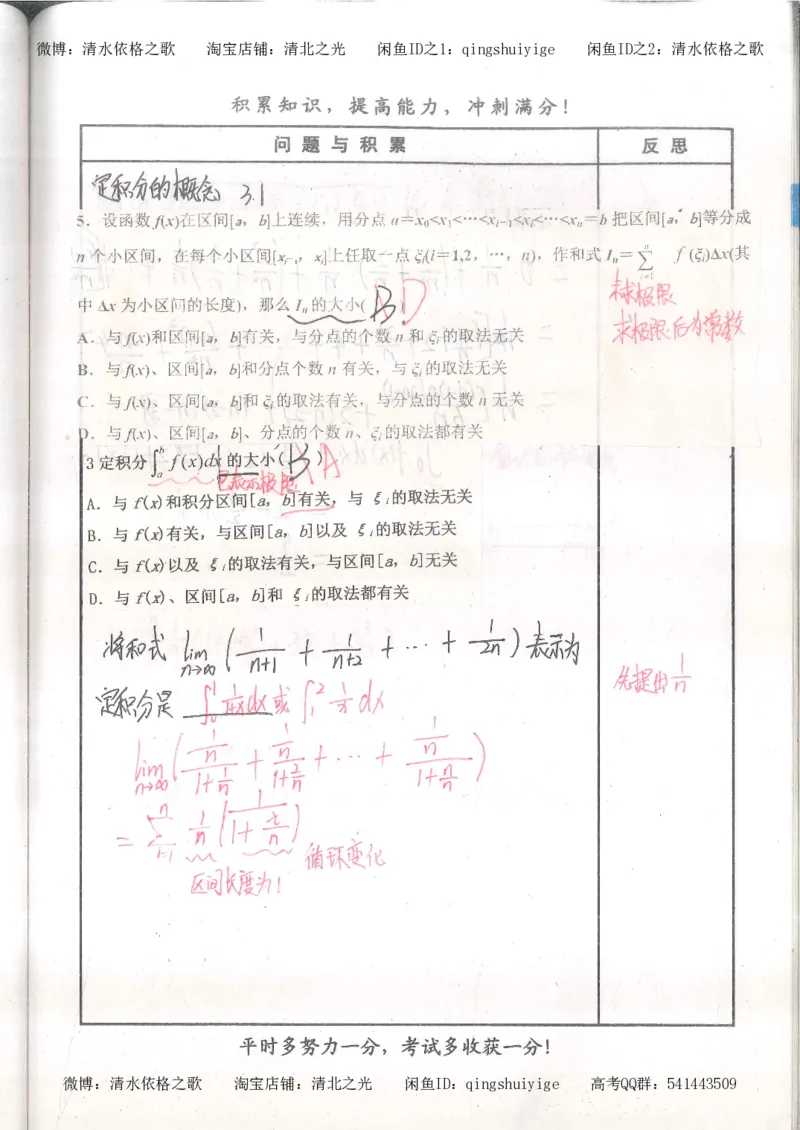 微博：清水依格之歌 淘宝店铺：清北之光 闲鱼ID之1：qingshuiyige 闲鱼ID之2：清水依格之歌
积累知识，提高能力，冲刺满分！
问题与积累 反思
定积分的概念 3.1
5．设函数f(x)在区间[a，b]上连续，用分点a＝x₀<x₁<…<xᵢ₋₁<xᵢ<…<xₙ＝b把区间[a，b]等分成
n个小区间，在每个小区间[xᵢ₋₁，xᵢ]上任取一点ξᵢ(i＝1,2，…，n)，作和式Iₙ＝∑ⁿᵢ₌₁ f(ξᵢ)Δx(其
中Δx为小区间的长度)，那么Iₙ的大小( B ) D
未求极限
求极限后为常数
A．与f(x)和区间[a，b]有关，与分点的个数n和ξᵢ的取法无关
B．与f(x)、区间[a，b]和分点个数n有关，与ξᵢ的取法无关
C．与f(x)、区间[a，b]和ξᵢ的取法有关，与分点的个数n无关
D．与f(x)、区间[a，b]、分点的个数n、ξᵢ的取法都有关
3定积分∫ₐᵇ f(x)dx的大小( B ) A
已表示极限
A．与f(x)和积分区间[a，b]有关，与ξᵢ的取法无关
B．与f(x)有关，与区间[a，b]以及ξᵢ的取法无关
C．与f(x)以及ξᵢ的取法有关，与区间[a，b]无关
D．与f(x)、区间[a，b]和ξᵢ的取法都有关
将和式 lim n→∞ (1/(n+1) + 1/(n+2) + … + 1/2n) 表示为
定积分是 ∫₀¹ 1/(1+x) dx 或 ∫₁² 1/x dx
先提出 1/n
lim n→∞ ((1/n)/(1+1/n) + (1/n)/(1+2/n) + … + (1/n)/(1+n/n))
= ∑ⁿᵢ₌₁ 1/n (1/(1+i/n))
循环变化
区间长度为1
平时多努力一分，考试多收获一分！
微博：清水依格之歌 淘宝店铺：清北之光 闲鱼ID：qingshuiyige 高考QQ群：541443509